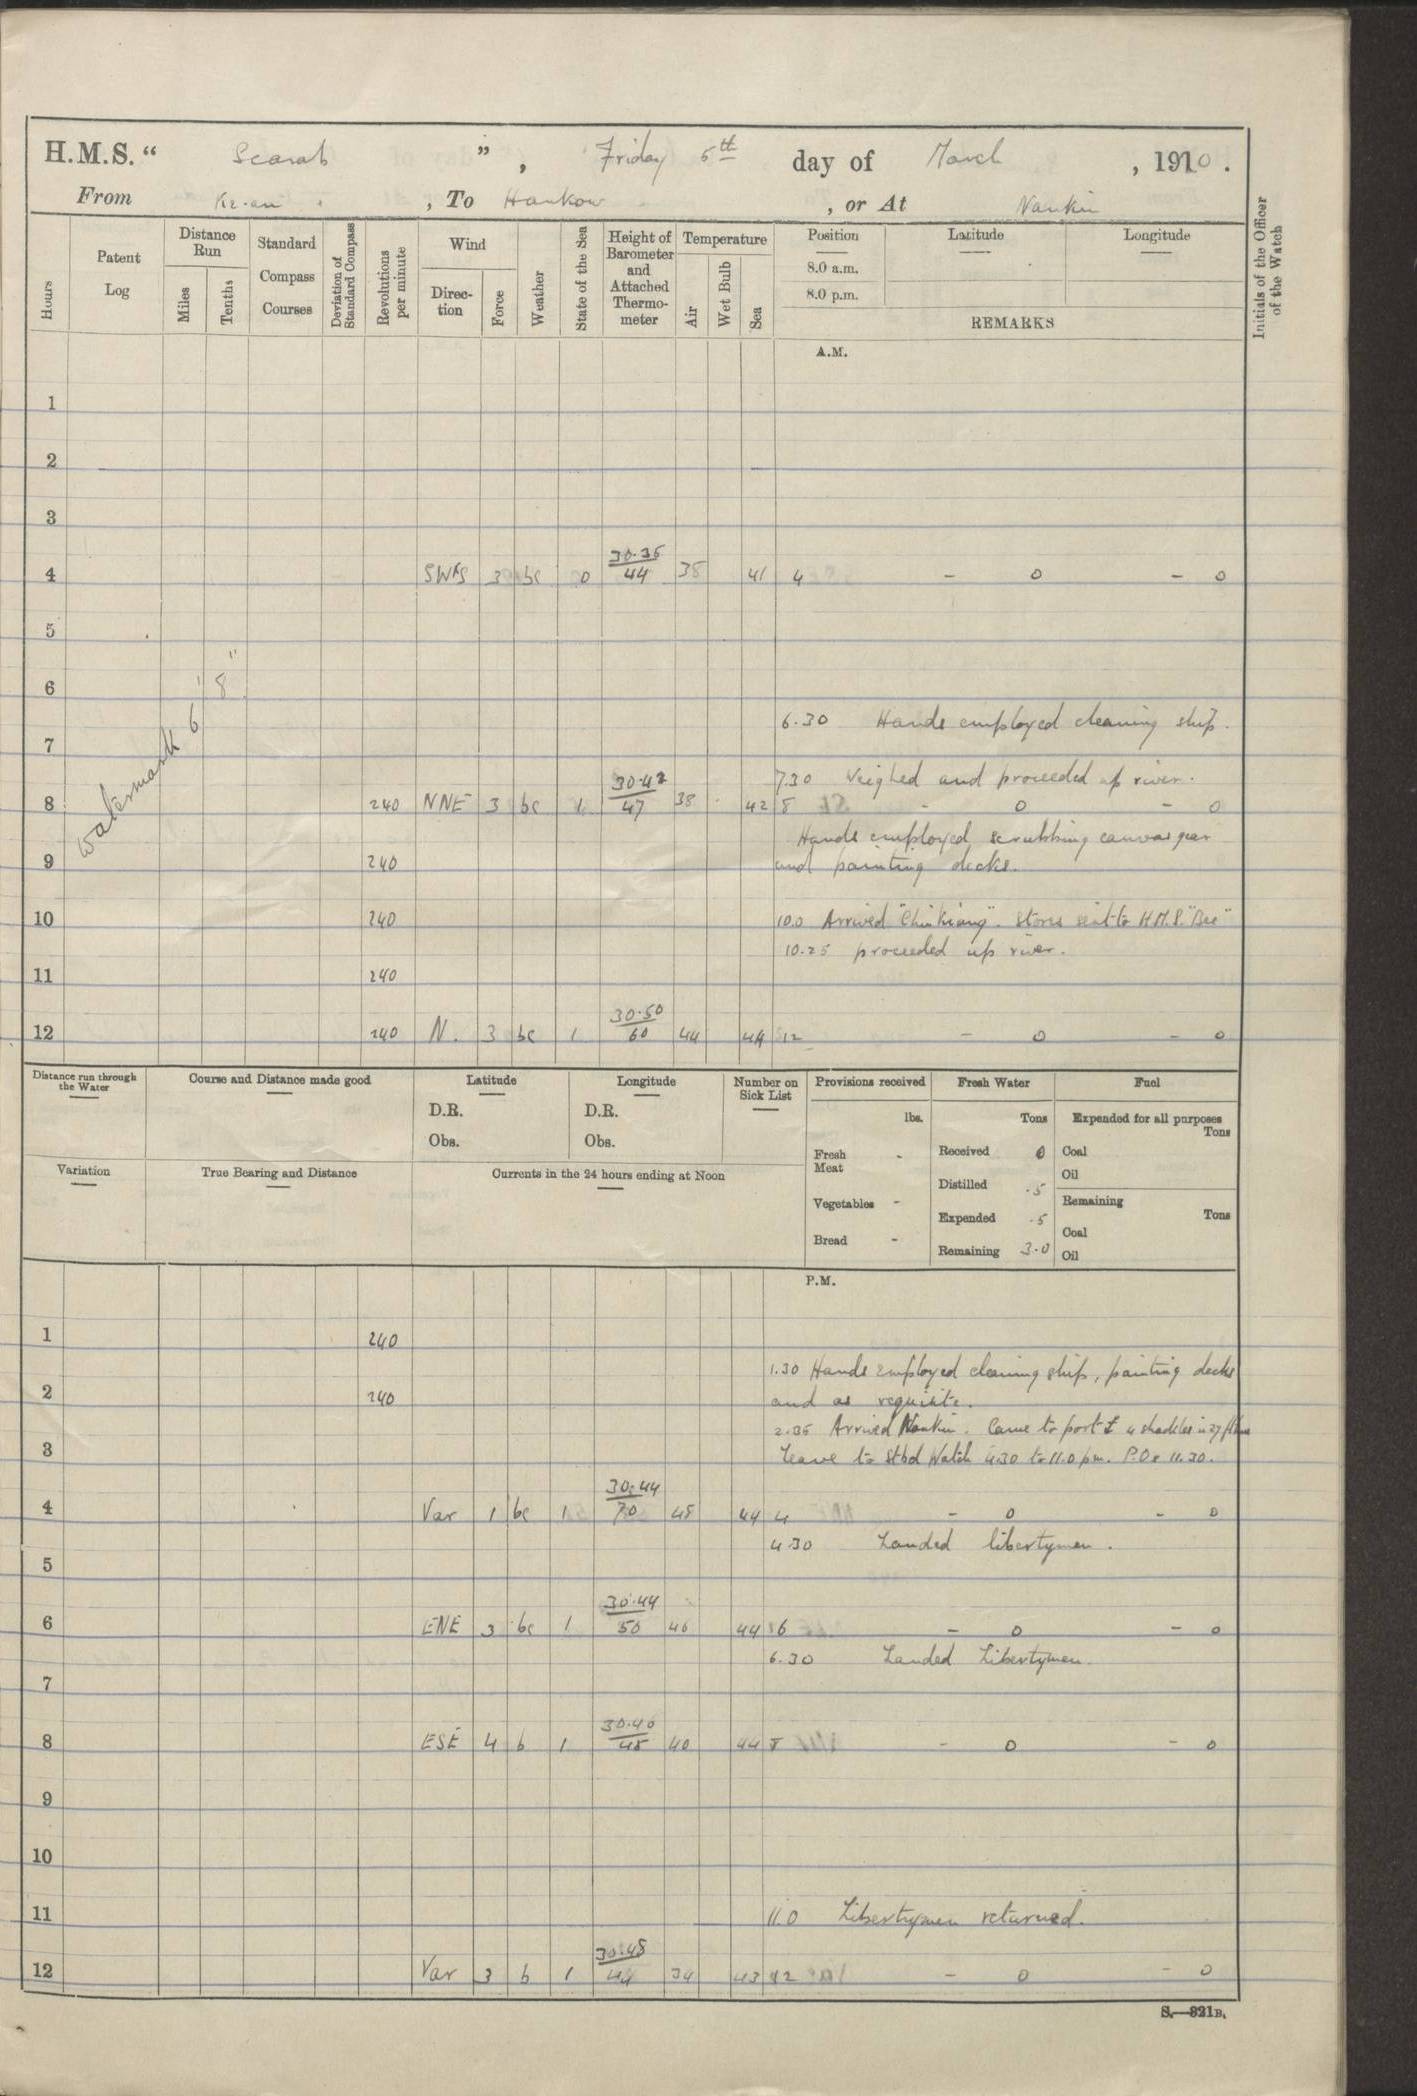 H.M.S. " Scarab ", Friday 5th day of March, 1910.
From , To Hankow , or At Nankin
Hours
Patent Log
Distance Run
Miles
Tenths
Standard Compass Courses
Deviation of Standard Compass
Revolutions per minute
Wind
Direction
Force
Weather
State of the Sea
Height of Barometer and Attached Thermometer
Temperature
Air
Wet Bulb
Sea
Position
8.0 a.m.
8.0 p.m.
Latitude
Longitude
REMARKS
Initials of the Officer of the Watch
A.M.
1
2
3
4 3 bc 0 30.35 44 38 41 4 - 0 - 0
5
6
watermark 6' 8"
6.30 Hands employed cleaning ship.
7
7.30 Weighed and proceeded up river.
8 240 NNE 3 bc 1 30.42 47 38 42 8 - 0 - 0
Hands employed scrubbing canvas gear
9 240 and painting decks.
10 240 10.0 Arrived "Chinkiang". Stores sent to H.M.S. "Bee"
10.25 proceeded up river.
11 240
12 240 N. 3 bc 1 30.50 60 44 44 12 - 0 - 0
Distance run through the Water
Course and Distance made good
Latitude
D.R.
Obs.
Longitude
D.R.
Obs.
Number on Sick List
Provisions received
lbs.
Fresh Meat -
Vegetables -
Bread -
Fresh Water
Tons
Received 0
Distilled .5
Expended .5
Remaining 3.0
Fuel
Expended for all purposes
Tons
Coal
Oil
Remaining
Tons
Coal
Oil
Variation
True Bearing and Distance
Currents in the 24 hours ending at Noon
P.M.
1 240
1.30 Hands employed cleaning ship, painting decks
2 240 and as requisite.
2.35 Arrived Nankin. Came to port 4 shackles in 27 fthms
3 Leave to Stbd Watch 4.30 to 11.0 pm. P.Os 11.30.
4 Var 1 bc 1 30.44 70 48 44 4 - 0 - 0
4.30 Landed libertymen.
5
6 ENE 3 bc 1 30.44 50 46 44 6 - 0 - 0
6.30 Landed Libertymen.
7
8 ESE 4 b 1 30.40 48 40 44 8 - 0 - 0
9
10
11 11.0 Libertymen returned.
12 Var 3 b 1 30.48 44 34 43 12 - 0 - 0
S.—321B.